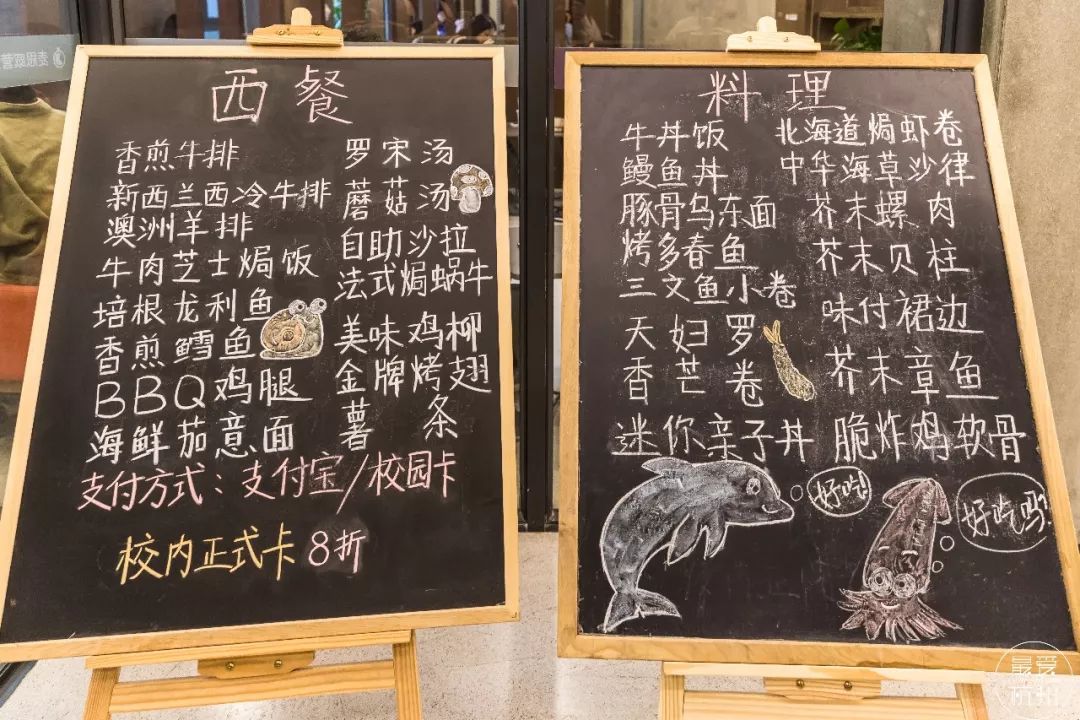 西餐
香煎牛排
新西兰西冷牛排
澳洲羊排
牛肉芝士焗饭
培根龙利鱼
香煎鳕鱼
BBQ鸡腿
海鲜茄意面
罗宋汤
蘑菇汤
自助沙拉
法式焗蜗牛
美味鸡柳
金牌烤翅
薯条
支付方式：支付宝/校园卡
校内正式卡8折
料理
牛丼饭
鳗鱼丼
豚骨乌东面
烤多春鱼
三文鱼小卷
天妇罗
香芒卷
迷你亲子丼
北海道焗虾卷
中华海草沙律
芥末螺肉
芥末贝柱
味付裙边
芥末章鱼
脆炸鸡软骨
好吃!
好吃吗?
最爱
杭州